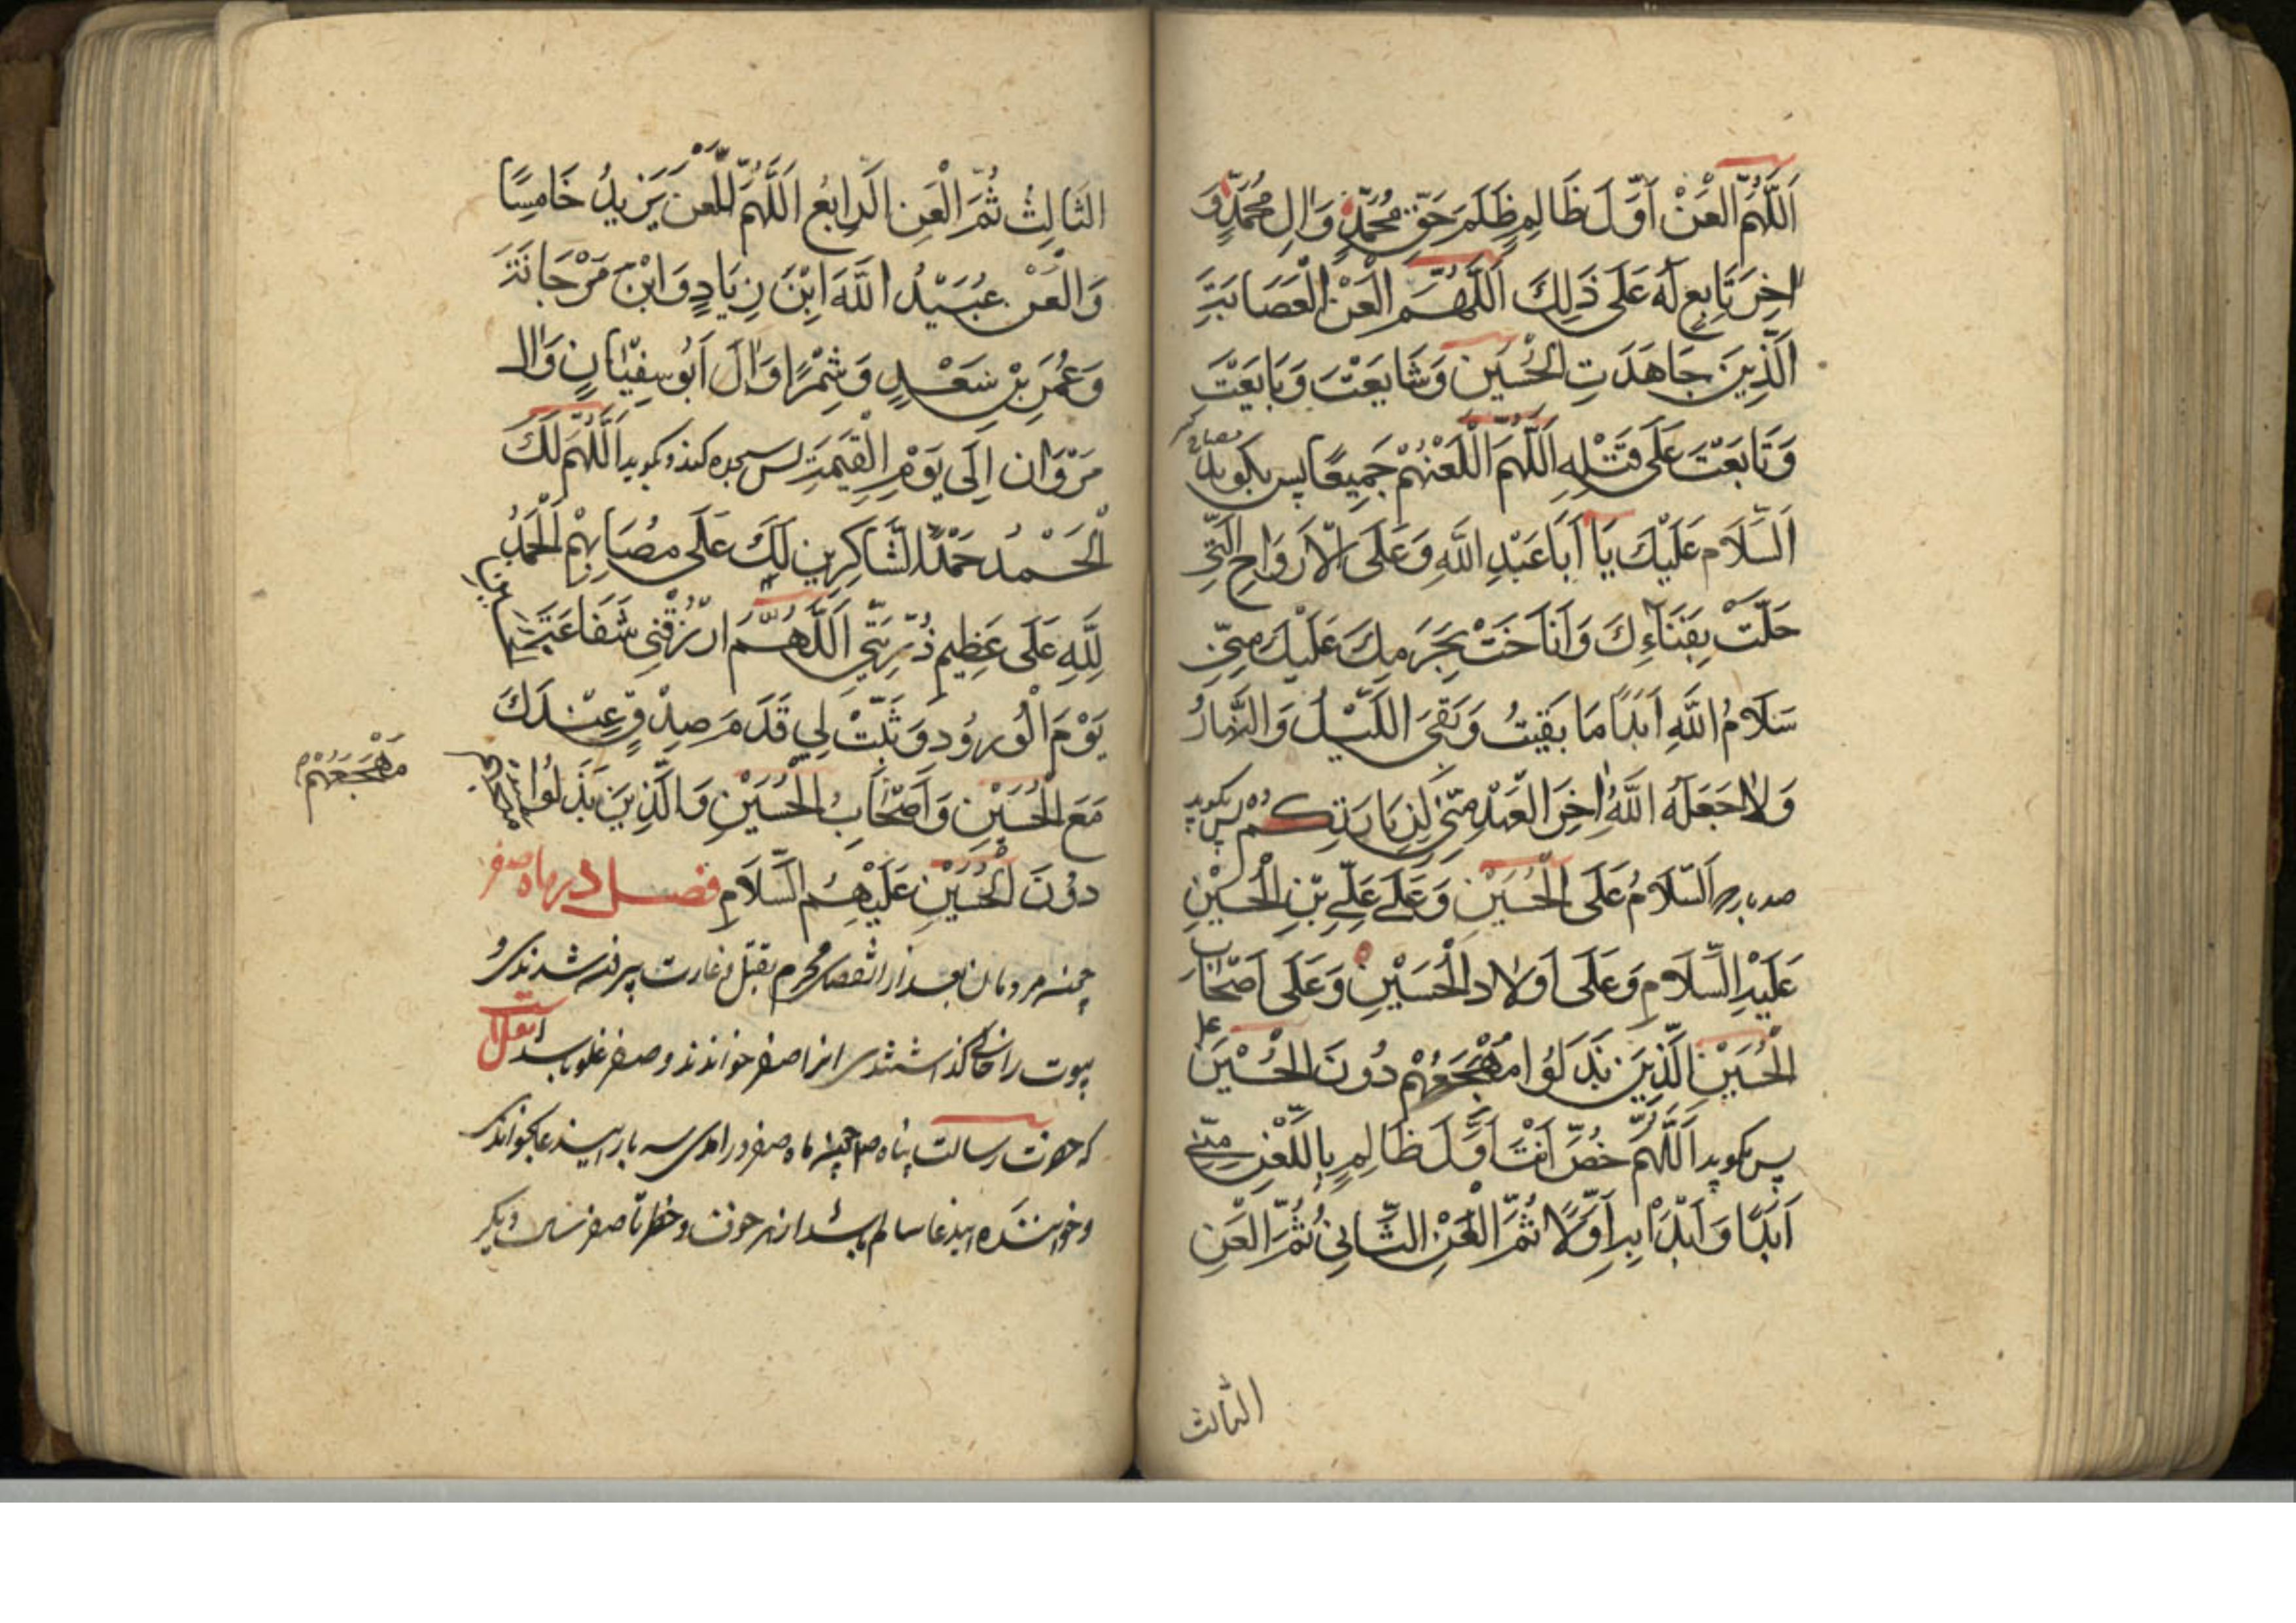 اَللّٰهُمَّ الْعَنْ اَوَّلَ ظَالِمٍ ظَلَمَ حَقَّ مُحَمَّدٍ وَاٰلِ مُحَمَّدٍ وَ
اٰخِرَ تَابِعٍ لَهُ عَلَى ذَلِكَ اَللّٰهُمَّ الْعَنْ الْعَصَابَةَ
الَّذِينَ جَاهَدَتِ الْحُسَيْنَ وَشَايَعَتْ وَبَايَعَتْ
وَتَابَعَتْ عَلَى قَتْلِهِ اَللّٰهُمَّ اللْعَنْهُمْ جَمِيعًا پس بكويد
اَلسَّلَام عَلَيْكَ يَا اَبَا عَبْدِ اللَّهِ وَعَلَى الْاَرْوَاحِ الَّتِي
حَلَّتْ بِفَنَاءِكَ وَاَنَاخَتْ بِحَرَمِكَ عَلَيْكَ مِنِّي
سَلَامُ اللَّهِ اَبَدًا مَا بَقِيتُ وَبَقِيَ اللَّيْلُ وَالنَّهَارُ
وَلَا جَعَلَهُ اللَّهُ اٰخِرَ الْعَهْدِ مِنِّي لِزِيَارَتِكُمْ پس بكويد
صد بار اَلسَّلَامُ عَلَى الْحُسَيْنِ وَعَلَى عَلِيِّ بْنِ الْحُسَيْنِ
عَلَيْهِ السَّلَامِ وَعَلَى اَوْلَادِ الْحُسَيْنِ وَعَلَى اَصْحَابِ
الْحُسَيْنِ الَّذِينَ بَذَلُوا مُهْجَعَهُمْ دُونَ الْحُسَيْنَ
پس بكويد اَللّٰهُمَّ خُصَّ اَنْتَ اَوَّلَ ظَالِمٍ بِاللَّعْنِ مِنِّي
اَبَدًا وَابْدَأْ بِهِ اَوَّلًا ثُمَّ الْعَنْ الثَّانِي ثُمَّ الْعَنِ
الثالث
الثَالِثُ ثُمَّ الْعَنِ الرَابِعُ اَللّٰهُمَّ اللعن يَزِيدُ خَامِسًا
وَالْعَنْ عُبَيْدُ اللَّهَ ابْنَ زِيَادٍ وَابْنَ مَرْجَانَةَ
وَعُمَرِ بْنِ سَعْدٍ وَشِمْرًا وَاٰلَ اَبُو سِفْيَانٍ وَاٰل
مَرْوَان اِلَى يَوْمِ الْقِيٰمَةِ پس سجده كند وبكويد اَللّٰهُمَّ لَكَ
الْحَمْدُ حَمْدًا لشَّاكِرِين لَكَ عَلَى مُصَابِهِمْ اَلْحَمْدُ
لِلَّهِ عَلَى عَظِيمِ ذُرِّيَتِي اَللّٰهُمَّ ارْزُقْنِي شَفَاعَةَ
يَوْمَ الْوُرُودِ وَثَبِّتْ لِي قَدَمَ صِدْقٍ عِنْدَكَ
مَعَ الْحُسَيْنِ وَاَصْحَابِ الْحُسَيْنِ وَالَّذِينَ بَذَلُوا
مَهْجَعَهُمْ
دُونَ الْحُسَيْنِ عَلَيْهِمُ السَّلَامِ فصل در ماه صفر
بعد از محرم بقتل وغارت شدندى و
را خالى كذاشتندى انرا صفر خواندند وصفر
كه حضرت رسالت پناه ماه صفر در امدى سه بار
وخواننده سالم باشد از هر خوف وخطر تا صفر ديكر